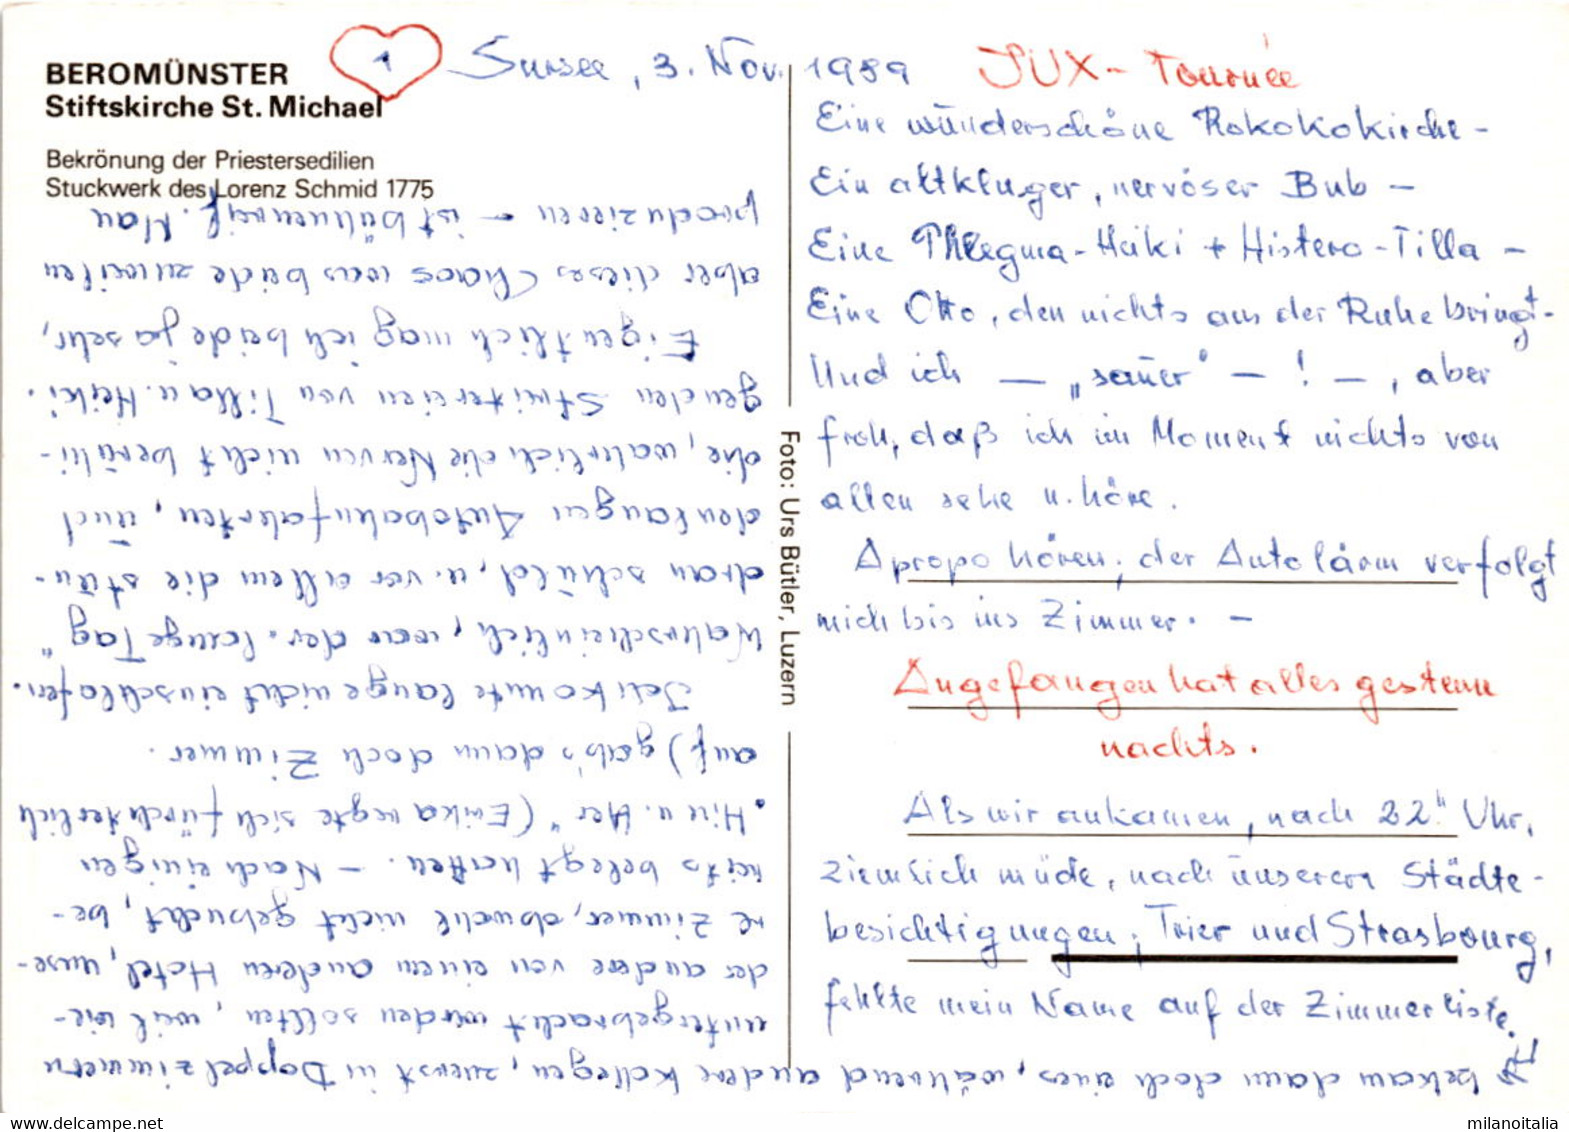 BEROMÜNSTER
Stiftskirche St. Michael
Bekrönung der Priestersedilien
Stuckwerk des Lorenz Schmid 1775
1
Sursee, 3. Nov. 1989
JUX - Tournée
Eine wunderschöne Rokokokirche -
Ein altkluger, nervöser Bub -
Eine Phlegma-Heiki + Histero-Tilla -
Eine Otto, den nichts aus der Ruhe bringt -
Und ich — „sauer" - ! - , aber
froh, daß ich im Moment nichts von
allen sehe u. höre.
Apropo hören, der Autolärm verfolgt
mich bis ins Zimmer. -
Angefangen hat alles gestern
nachts.
Als wir ankamen, nach 22.ʰ Uhr,
ziemlich müde, nach unseren Städte-
besichtigungen, Trier und Strasbourg,
fehlte mein Name auf der Zimmerliste.
bekam dann doch eines, während andere Kollegen, zuerst in Doppelzimmern
untergebracht werden sollten, weil wie-
der andere von einem anderen Hotel, unse-
re Zimmer, obwohl nicht gebucht, be-
reits belegt hatten. - Nach einigen
"Hin u. Her" (Erika regte sich fürchterlich
auf) gab's dann doch Zimmer.
Ich konnte lange nicht einschlafen.
Wahrscheinlich, war der "lange Tag"
dran schuld, u. vor allem die stun-
denlangen Autobahnfahrten, und
die, wahrlich die Nerven nicht beruhi-
genden Streitereien von Tilla u. Heiki.
Eigentlich mag ich beide ja sehr,
aber dieses Chaos was beide zuweilen
produzieren - ist bühnenreif. Man
Foto: Urs Bütler, Luzern
milanoitalia